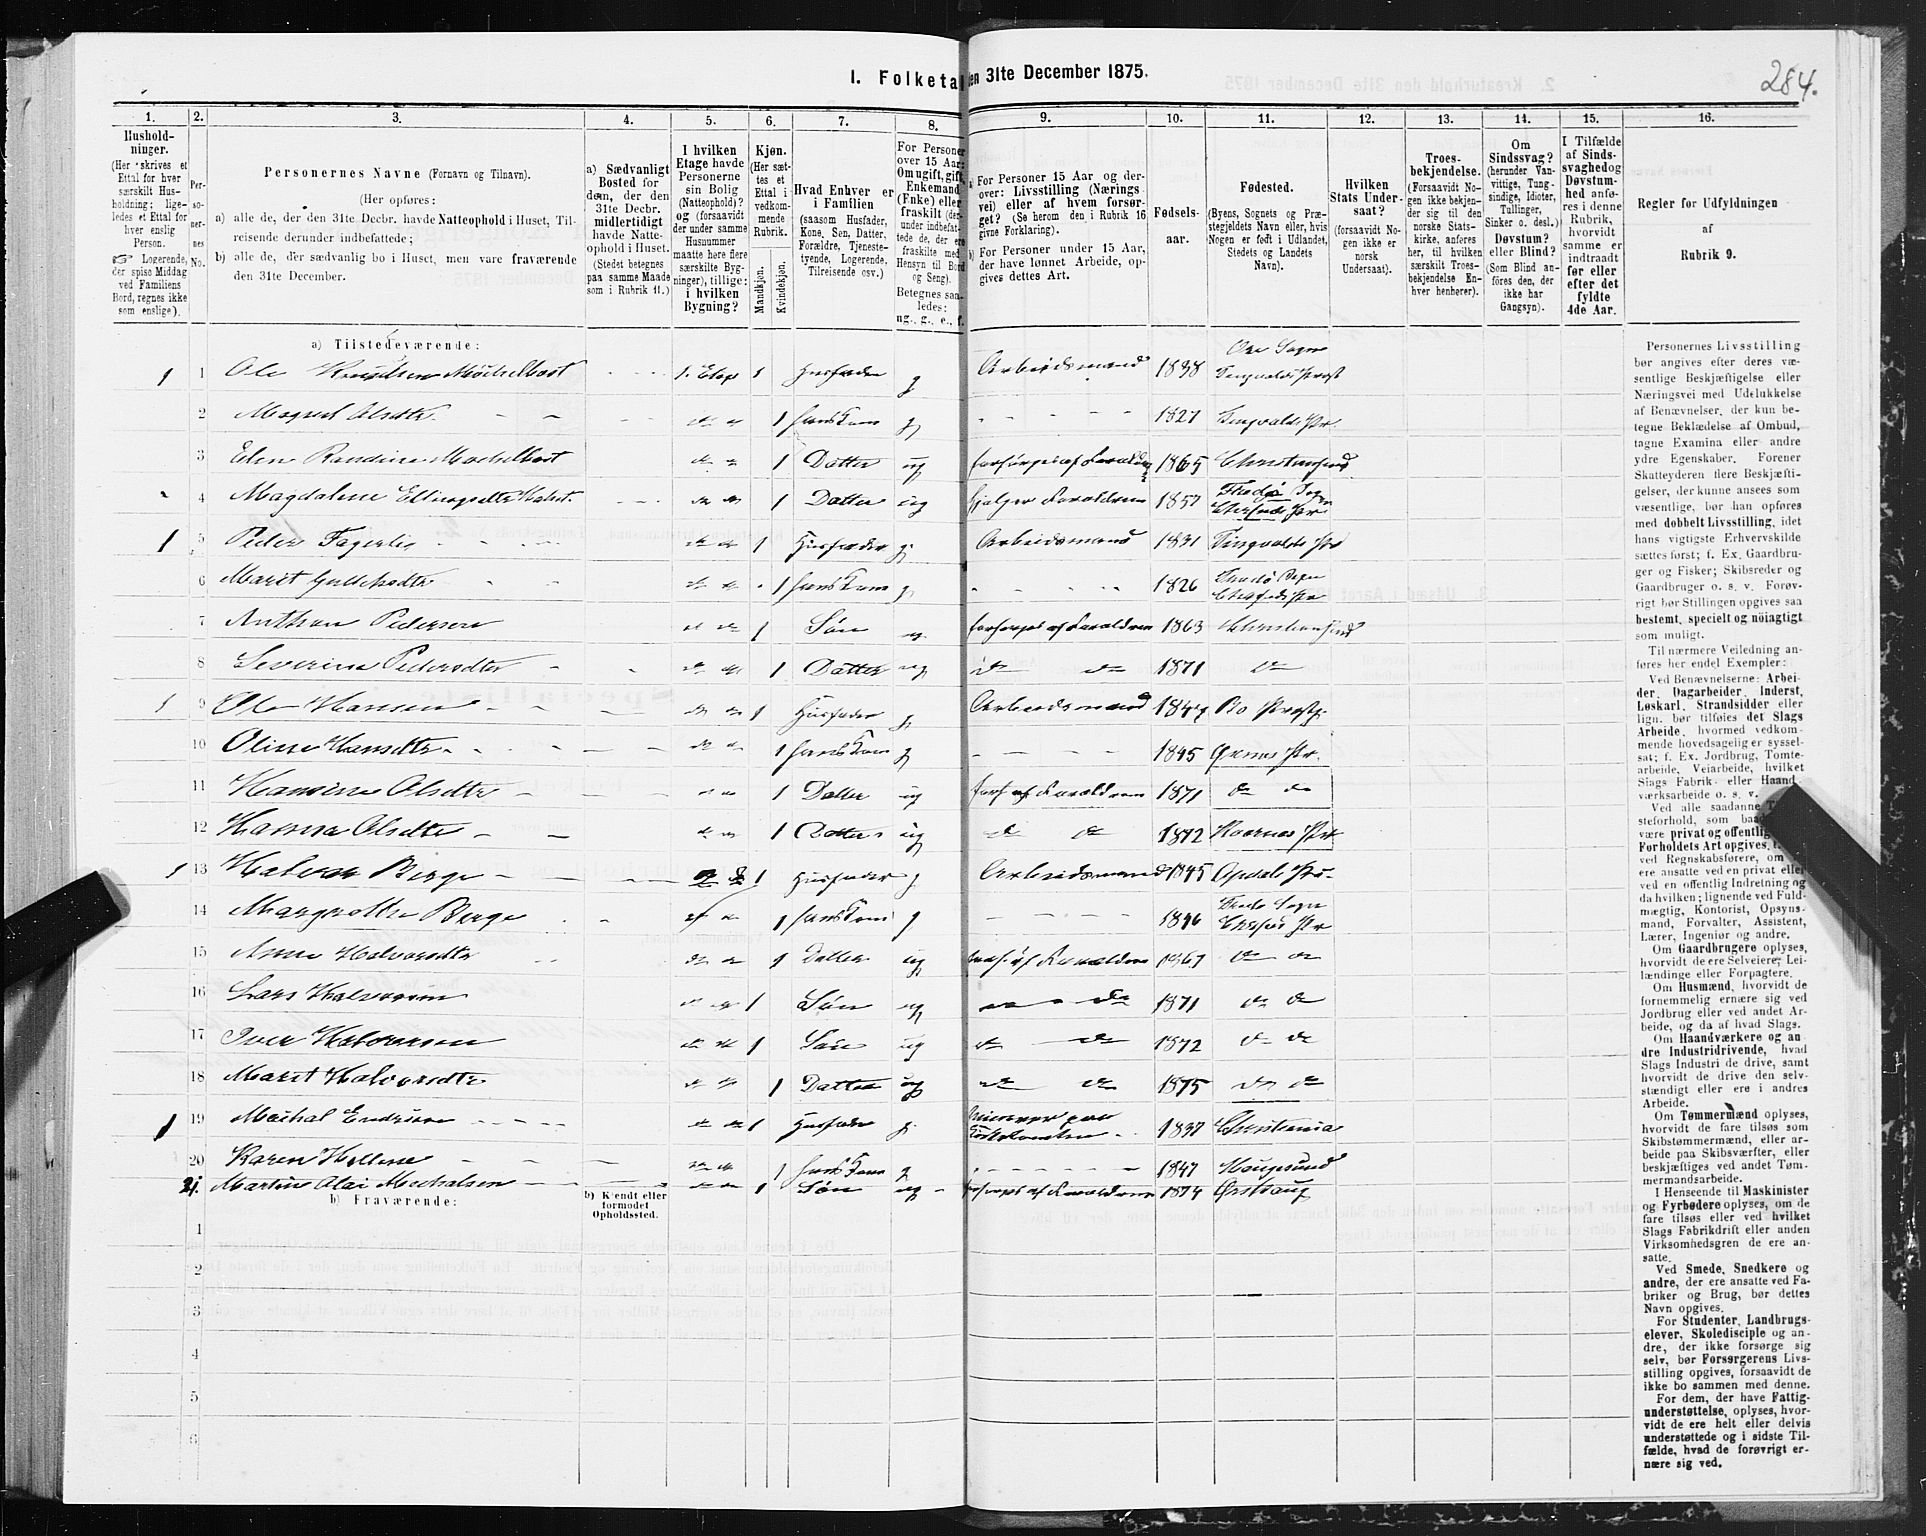 284.
I. Folketal den 31te December 1875.
1. 2. 3. 4. 5. 6. 7. 8. 9. 10. 11. 12. 13. 14. 15. 16.
Hushold-
ninger.
(Her skrives et
Ettal for hver
særskilt Hus-
holdning; lige-
ledes et Ettal for
hver enslig
Person.
☞ Logerende,
der spise Middag
ved Familiens
Bord, regnes ikke
som enslige).
Per-
so-
ner-
nes
No.
Personernes Navne (Fornavn og Tilnavn).
(Her opføres:
a) alle de, der den 31te Decbr. havde Natteophold i Huset, Til-
reisende derunder indbefattede;
b) alle de, der sædvanlig bo i Huset, men vare fraværende
den 31te December.
a) Sædvanligt
Bosted for
dem, der den
31te Decbr.
midlertidigt
havde Natte-
ophold i Huset.
(Stedet betegnes
paa samme Maade
som i Rubrik 11.)
I hvilken
Etage havde
Personerne
sin Bolig
(Natteophold)?
og (forsaavidt
der under samme
Husnummer
maatte høre flere
særskilte Byg-
ninger), tillige:
i hvilken
Bygning?
Kjøn.
(Her sæt-
tes et
Ettal i
vedkom-
mende
Rubrik.
Mandkjøn.
Kvindekjøn.
Hvad Enhver er
i Familien
(saasom Husfader,
Kone, Søn, Datter,
Forældre, Tjeneste-
tyende, Logerende,
Tilreisende osv.)
For Personer
over 15 Aar:
Om ugift, gift,
Enkemand
(Enke) eller
fraskilt (der-
under indbefat-
tede de, der ere
fraskilte med
Hensyn til Bord
og Seng).
Betegnes saa-
ledes:
ug., g., e., f.
a) For Personer 15 Aar og der-
over: Livsstilling (Nærings-
vei) eller af hvem forsør-
get? (Se herom den i Rubrik 16
givne Forklaring).
b) For Personer under 15 Aar,
der have lønnet Arbeide, op-
gives dettes Art.
Fødsels-
aar.
Fødested.
(Byens, Sognets og Præ-
stegjeldets Navn eller, hvis
Nogen er født i Udlandet,
Stedets og Landets
Navn).
Hvilken
Stats Under-
saat?
(forsaavidt No-
gen ikke er
norsk
Undersaat).
Troes-
bekjendelse.
(Forsaavidt No-
gen ikke bekjen-
der sig til den
norske Stats-
kirke, anføres
her, til hvilken
særskilt Troes-
bekjendelse En-
hver henhører).
Om
Sindssvag?
(herunder Van-
vittige, Tung-
sindige, Idioter,
Tullinger,
Sinker o. desl.)
Døvstum?
eller Blind?
(Som Blind an-
føres den, der
ikke har
Gangsyn).
I Tilfælde
af Sinds-
svaghed og
Døvstum-
hed anfø-
res i denne
Rubrik,
hvorvidt
samme er
indtraadt
før eller
efter det
fyldte
4de Aar.
Regler for Udfyldningen
af
Rubrik 9.
a) Tilstedeværende:
1 1 Ole Knudsen 1. Etag 1 Husfader g Arbeidsmand 1838 Øre Sogn Tingvolds Præst
2 Magrit Olsdtr 1 hans Kone g 1827 Tingvolds Pr.
3 Elen Randine 1 Datter ug forsørges af Forældrene 1865 Christiansund
4 Magdalene 1 Datter ug hjelper Forældrene 1857 Fredø Sogn
1 5 Peder Fagerli 1 Husfader g. Arbeidsmand 1831 Tingvolds Pr
6 Marit 1 hans Kone g 1826
7 Anthon Pedersen 1 Søn ug. forsørges af Forældrene 1863 Christiansund
8 Severine Pedersdtr 1 Datter ug do do 1871 do
1 9 Ole Hansen 1 Husfader g Arbeidsmand 1847 Bo Præstg.
10 Oline Hansdtr 1 hans Kone g 1845 Øxnes Pr.
11 Hansine Olsdtr 1 Datter ug fors af Forældrene 1871 do do
12 Hanna Olsdtr 1 Datter ug do do 1872
1 13 Halvor Berge 1 Husfader g Arbeidsmand 1845 Opdals Pr.
14 Margrethe Berge 1 hans Kone g 1846 Fredø Sogn
15 Anne Halvorsdtr 1 Datter ug fors af Forældrene 1867 do do
16 Lars Halvorsen 1 Søn ug do 1871 do do
17 Iver Halvorsen 1 Søn ug do do 1872 do do
18 Marit Halvorsdtr 1 Datter ug do do 1875 do do
1 19 Michal Endresen 1 Husfader g. 1837 Christiania
20 Karen Helene 1 hans Kone g 1847 Haugesund
21. Martin Olai Michalsen 1 Søn ug forsørges af Forældrene 1874 Ørskaug
b) Fraværende:
b) Kjendt eller
formodet
Opholdssted.
1
2
3
4
5
6
Personernes Livsstilling
bør angives efter deres væ-
sentlige Beskjæftigelse eller
Næringsvei med Udelukkelse
af Benævnelser, der kun be-
tegne Beklædelse af Ombud,
tagne Examina eller andre
ydre Egenskaber. Forener
Skatteyderen flere Beskjæfti-
gelser, der kunne ansees som
væsentlige, bør han opføres
med dobbelt Livsstilling, idet
hans vigtigste Erhvervskilde
sættes først; f. Ex. Gaardbru-
ger og Fisker; Skibsreder og
Gaardbruger o. s. v. Forøv-
rigt bør Stillingen opgives saa
bestemt, specielt og nøiagtigt
som muligt.
Til nærmere Veiledning an-
føres her endel Exempler:
Ved Benævnelserne: Arbei-
der, Dagarbeider, Inderst,
Løskarl, Strandsidder eller
lign. bør tilføies det Slags
Arbeide, hvormed vedkom-
mende hovedsagelig er syssel-
sat; f. Ex. Jordbrug, Tomte-
arbeide, Veiarbeide, hvilket
Slags Fabrik- eller Haand-
værksarbeide o. s. v.
Ved alle saadanne
steforhold, som baade
være privat og offentlig,
Forholdets Art opgives,
ved Regnskabsførere, om
ere ansatte ved en privat eller
ved en offentlig Indretning og
da hvilken; lignende ved Fuld-
mægtig, Kontorist, Opsyns-
mand, Forvalter, Assistent,
Lærer, Ingeniør og andre.
Om Gaardbrugere oplyses,
hvorvidt de ere Selveiere, Lei-
lændinge eller Forpagtere.
Om Husmænd, hvorvidt de
fornemmelig ernære sig ved
Jordbrug eller ved andet Ar-
beide, og da af hvad Slags.
Om Haandværkere og an-
dre Industridrivende, hvad
Slags Industri de drive, samt
hvorvidt de drive den selv-
stændigt eller ere i andres
Arbeide.
Om Tømmermænd oplyses,
hvorvidt de fare tilsøs som
Skibstømmermænd, eller ar-
beide paa Skibsværfter, eller
beskjæftiges ved andet Tøm-
mermandsarbeide.
I Henseende til Maskinister
og Fyrbødere oplyses, om de
fare tilsøs eller ved hvilket
Slags Fabrikdrift eller anden
Virksomhedsgren de ere an-
satte.
Ved Smede, Snedkere og
andre, der ere ansatte ved Fa-
briker og Brug, bør dettes
Navn opgives.
For Studenter, Landbrugs-
elever, Skoledisciple og an-
dre, der ikke forsørge sig
selv, bør Forsørgerens Livs-
stilling opgives, forsaavidt de
ikke bo sammen med denne.
For dem, der have Fattig-
understøttelse, oplyses, hvor-
vidt de ere helt eller delvis
understøttede og i sidste Til-
fælde, hvad de forøvrigt er-
nære sig ved.